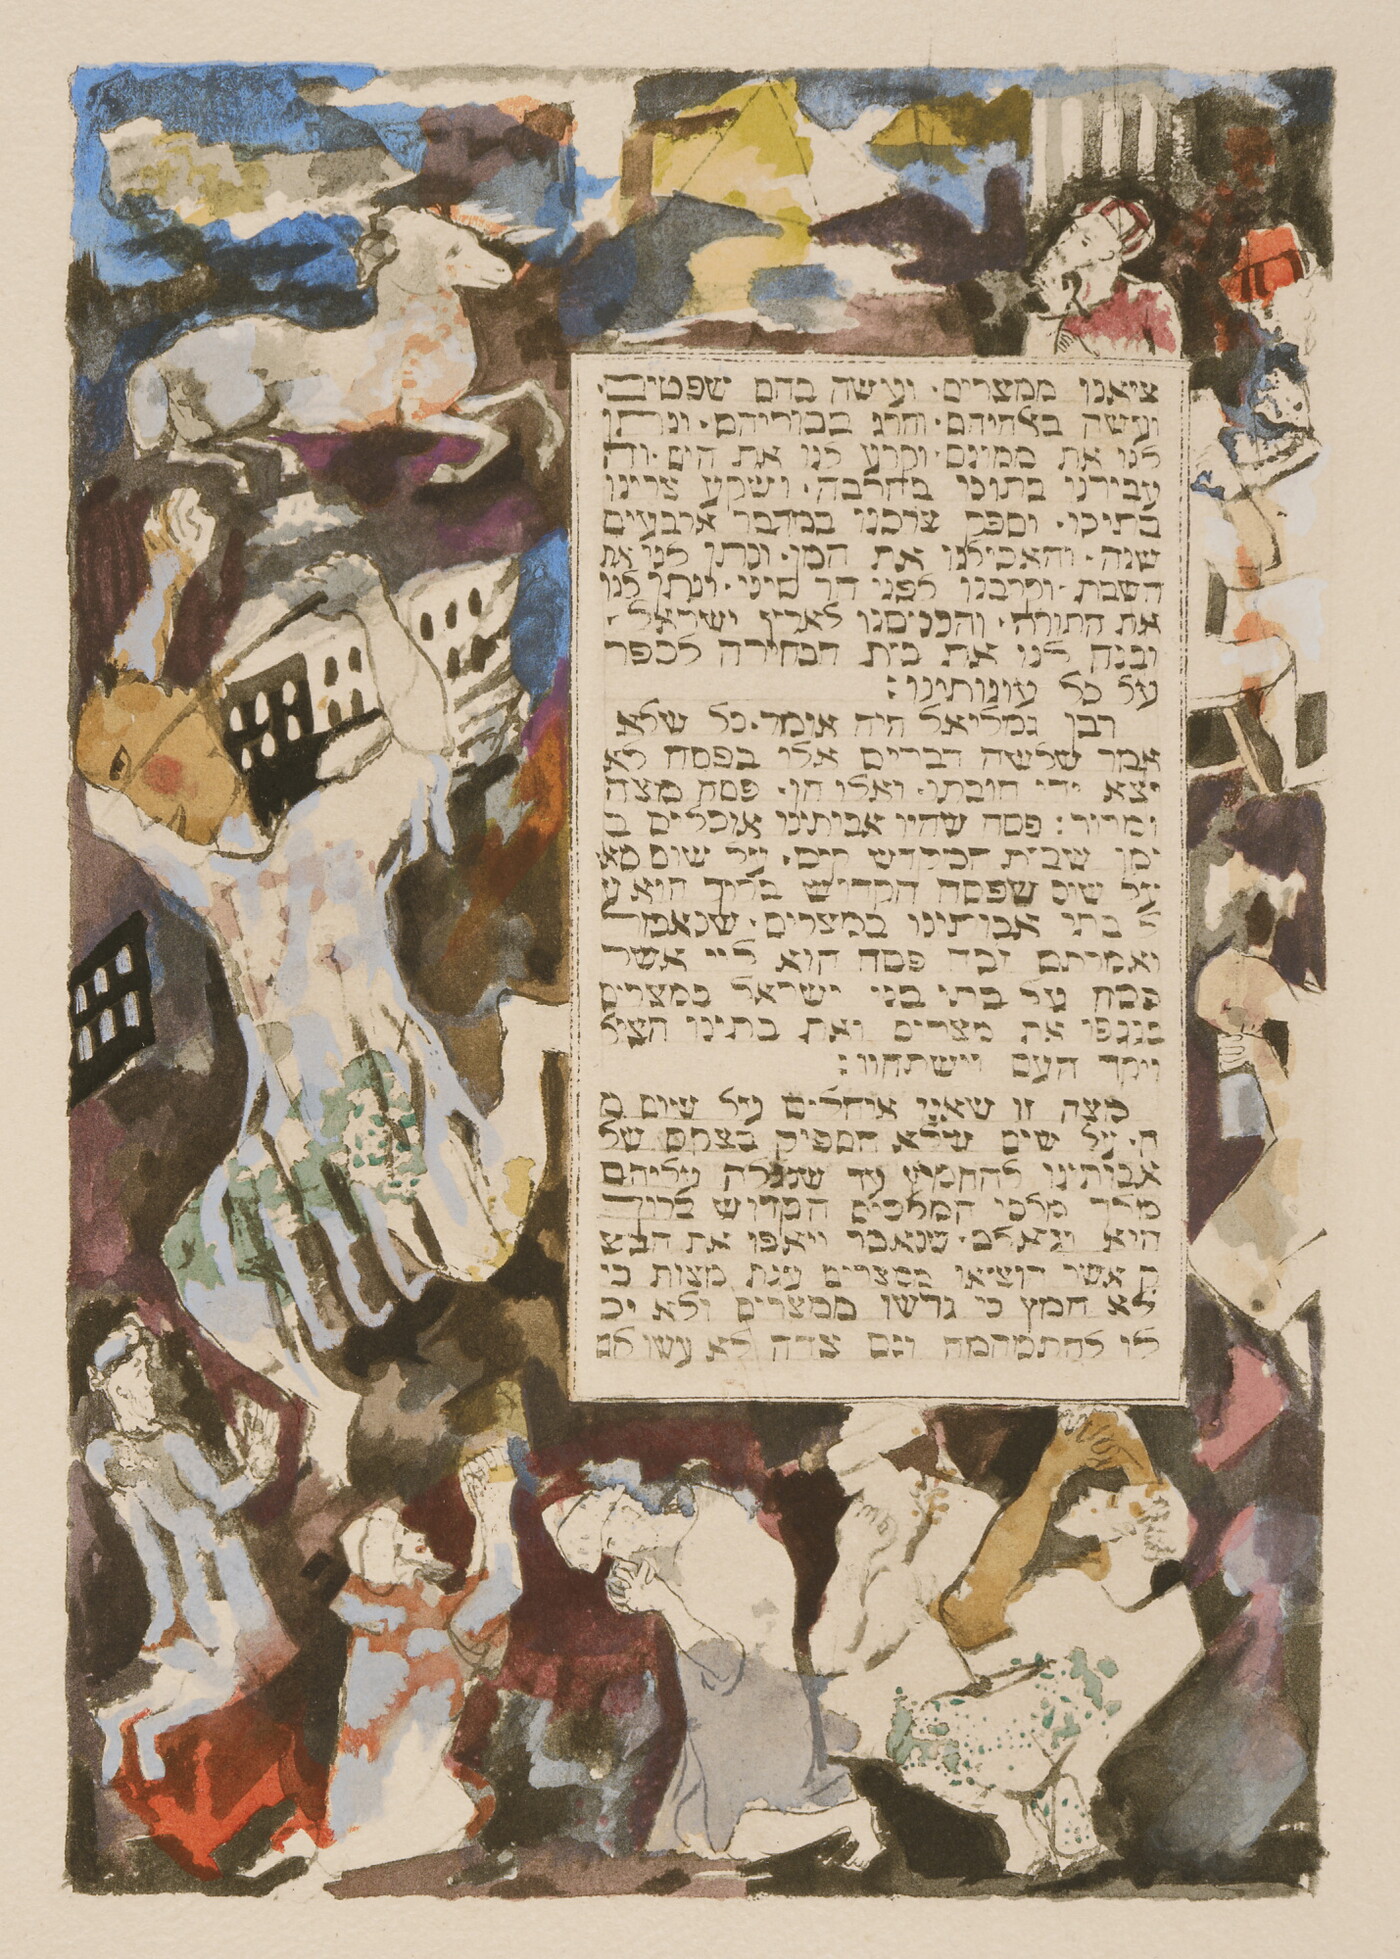 ציאנו ממצרים · ועשה בהם שפטים ·
ועשה באלהיהם · והרג בכוריהם · ונתן
לנו את ממונם · וקרע לנו את הים · וה
עבירנו בתוכו בחרבה · ושקע צרינו
בתוכו · וספק צרכנו במדבר ארבעים
שנה · והאכילנו את המן · ונתן לנו את
השבת · וקרבנו לפני הר סיני · ונתן לנו
את התורה · והכניסנו לארץ ישראל ·
ובנה לנו את בית הבחירה לכפר
על כל עונותינו :
רבן גמליאל היה אומר · כל שלא
אמר שלשה דברים אלו בפסח לא
יצא ידי חובתו · ואלו הן · פסח מצה
ומרור : פסח שהיו אבותינו אוכלים ב
זמן שבית המקדש קים · על שום מא
על שום שפסח הקדוש ברוך הוא ע
ל בתי אבותינו במצרים · שנאמר
ואמרתם זבח פסח הוא ליי אשר
פסח על בתי בני ישראל במצרים
בנגפו את מצרים ואת בתינו הציל
ויקד העם וישתחוו :
מצה זו שאנו אוכלים על שום מ
ה · על שום שלא הספיק בצקם של
אבותינו להחמיץ עד שנגלה עליהם
מלך מלכי המלכים הקדוש ברוך
הוא וגאלם · שנאמר ויאפו את הבצ
ק אשר הוציאו ממצרים עגת מצות כי
לא חמץ כי גרשו ממצרים ולא יכ
לו להתמהמה וגם צדה לא עשו להם